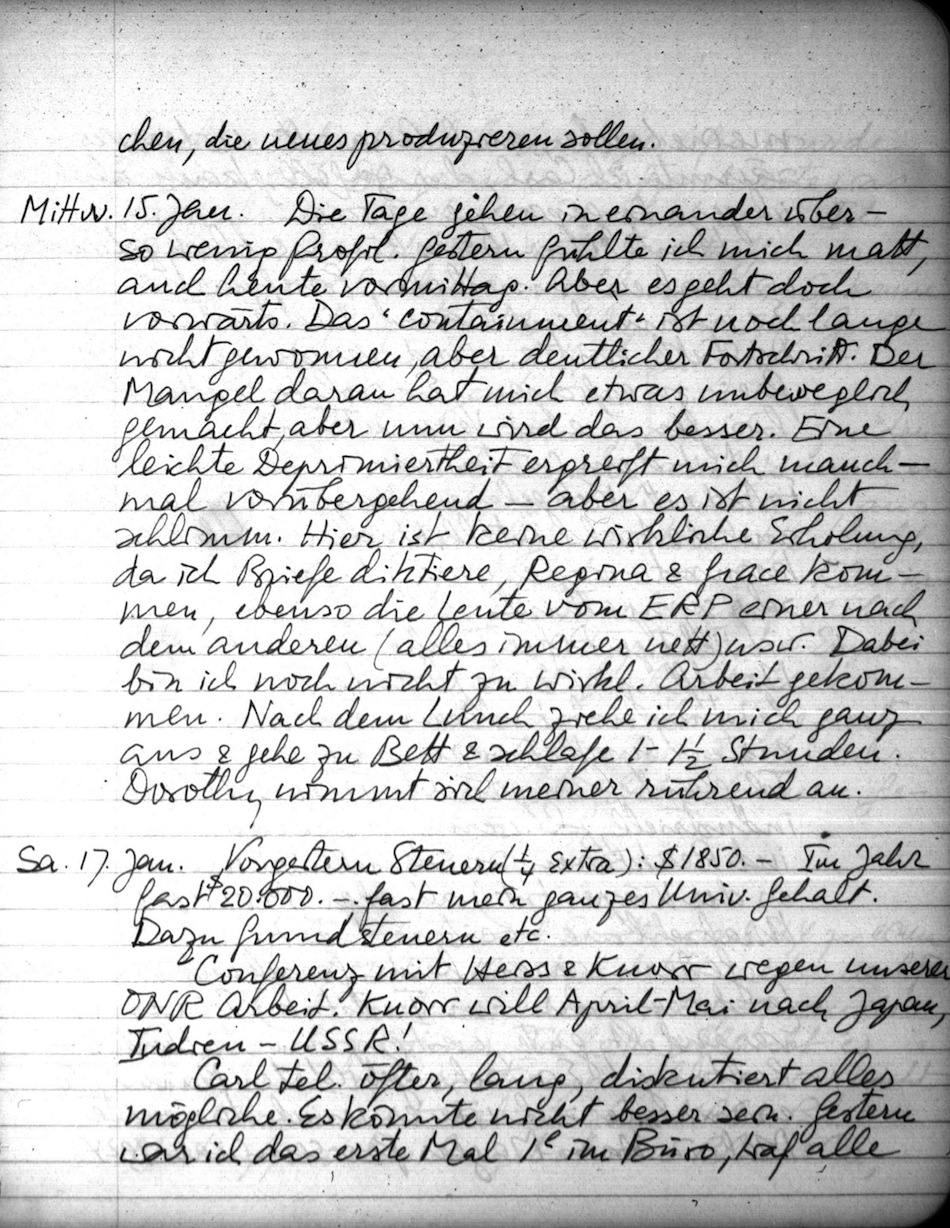 chen, die neues produzieren sollen.
Mittw. 15. Jan. Die Tage gehen ineinander über –
so wenig Profil. Gestern fühlte ich mich matt,
auch heute vormittag. Aber es geht doch
vorwärts. Das "containment" ist noch lange
nicht gewonnen, aber deutlicher Fortschritt. Der
Mangel daran hat mich etwas unbeweglich
gemacht, aber nun wird das besser. Eine
leichte Deprimiertheit ergreift mich manch-
mal vorübergehend – aber es ist nicht
schlimm. Hier ist keine wirkliche Erholung,
da ich Briefe diktiere, Regina & Grace kom-
men, ebenso die Leute vom ERP einer nach
dem anderen (alles immer nett) usw. Dabei
bin ich noch nicht zu wirkl. Arbeit gekom-
men. Nach dem Lunch ziehe ich mich ganz
aus & gehe zu Bett & schlafe 1 – 1½ Stunden.
Dorothy nimmt sich meiner rührend an.
Sa. 17. Jan. Vorgestern Steuern (¼ extra): $1850.– Im Jahr
fast $20.000.–. fast mein ganzes Univ. Gehalt.
Dazu Grundsteuern etc.
Conferenz mit Heiss & Knorr wegen unserer
ONR Arbeit. Knorr will April-Mai nach Japan,
Indien – USSR!
Carl tel. öfter, lang, diskutiert alles
mögliche. Es könnte nicht besser sein. Gestern
war ich das erste Mal 1ʰ im Büro, traf alle